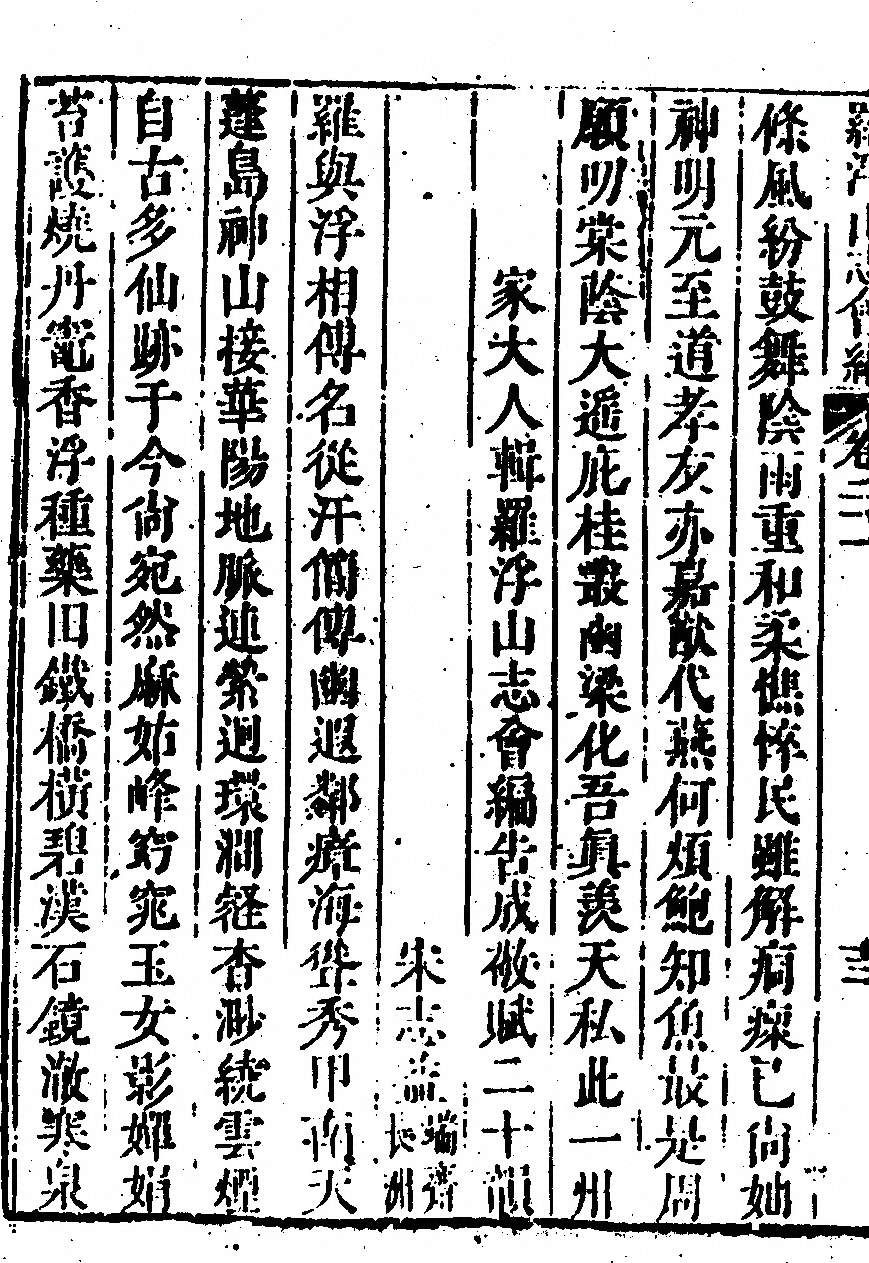 羅浮山志會編 卷二二 三
條風紛鼓舞陰雨重和柔憔悴民雖解痌瘝已尚如
神明元至道孝友亦嘉猷代燕何煩鮑知魚最是周
願叨棠蔭大遥庇桂叢幽梁化吾眞羨天私此一州
家大人輯羅浮山志會編告成敬賦二十韻
朱志 瑞齋 長洲
羅與浮相傅名從汗簡傳幽遐鄰瘴海聳秀甲南天
蓬島神山接華陽地脈連縈迴環澗谿杳渺繞雲煙
自古多仙跡于今尙宛然麻姑峰窈窕玉女影嬋娟
苔護燒丹竈香浮種藥田鐵橋橫碧漢石鏡澈寒泉